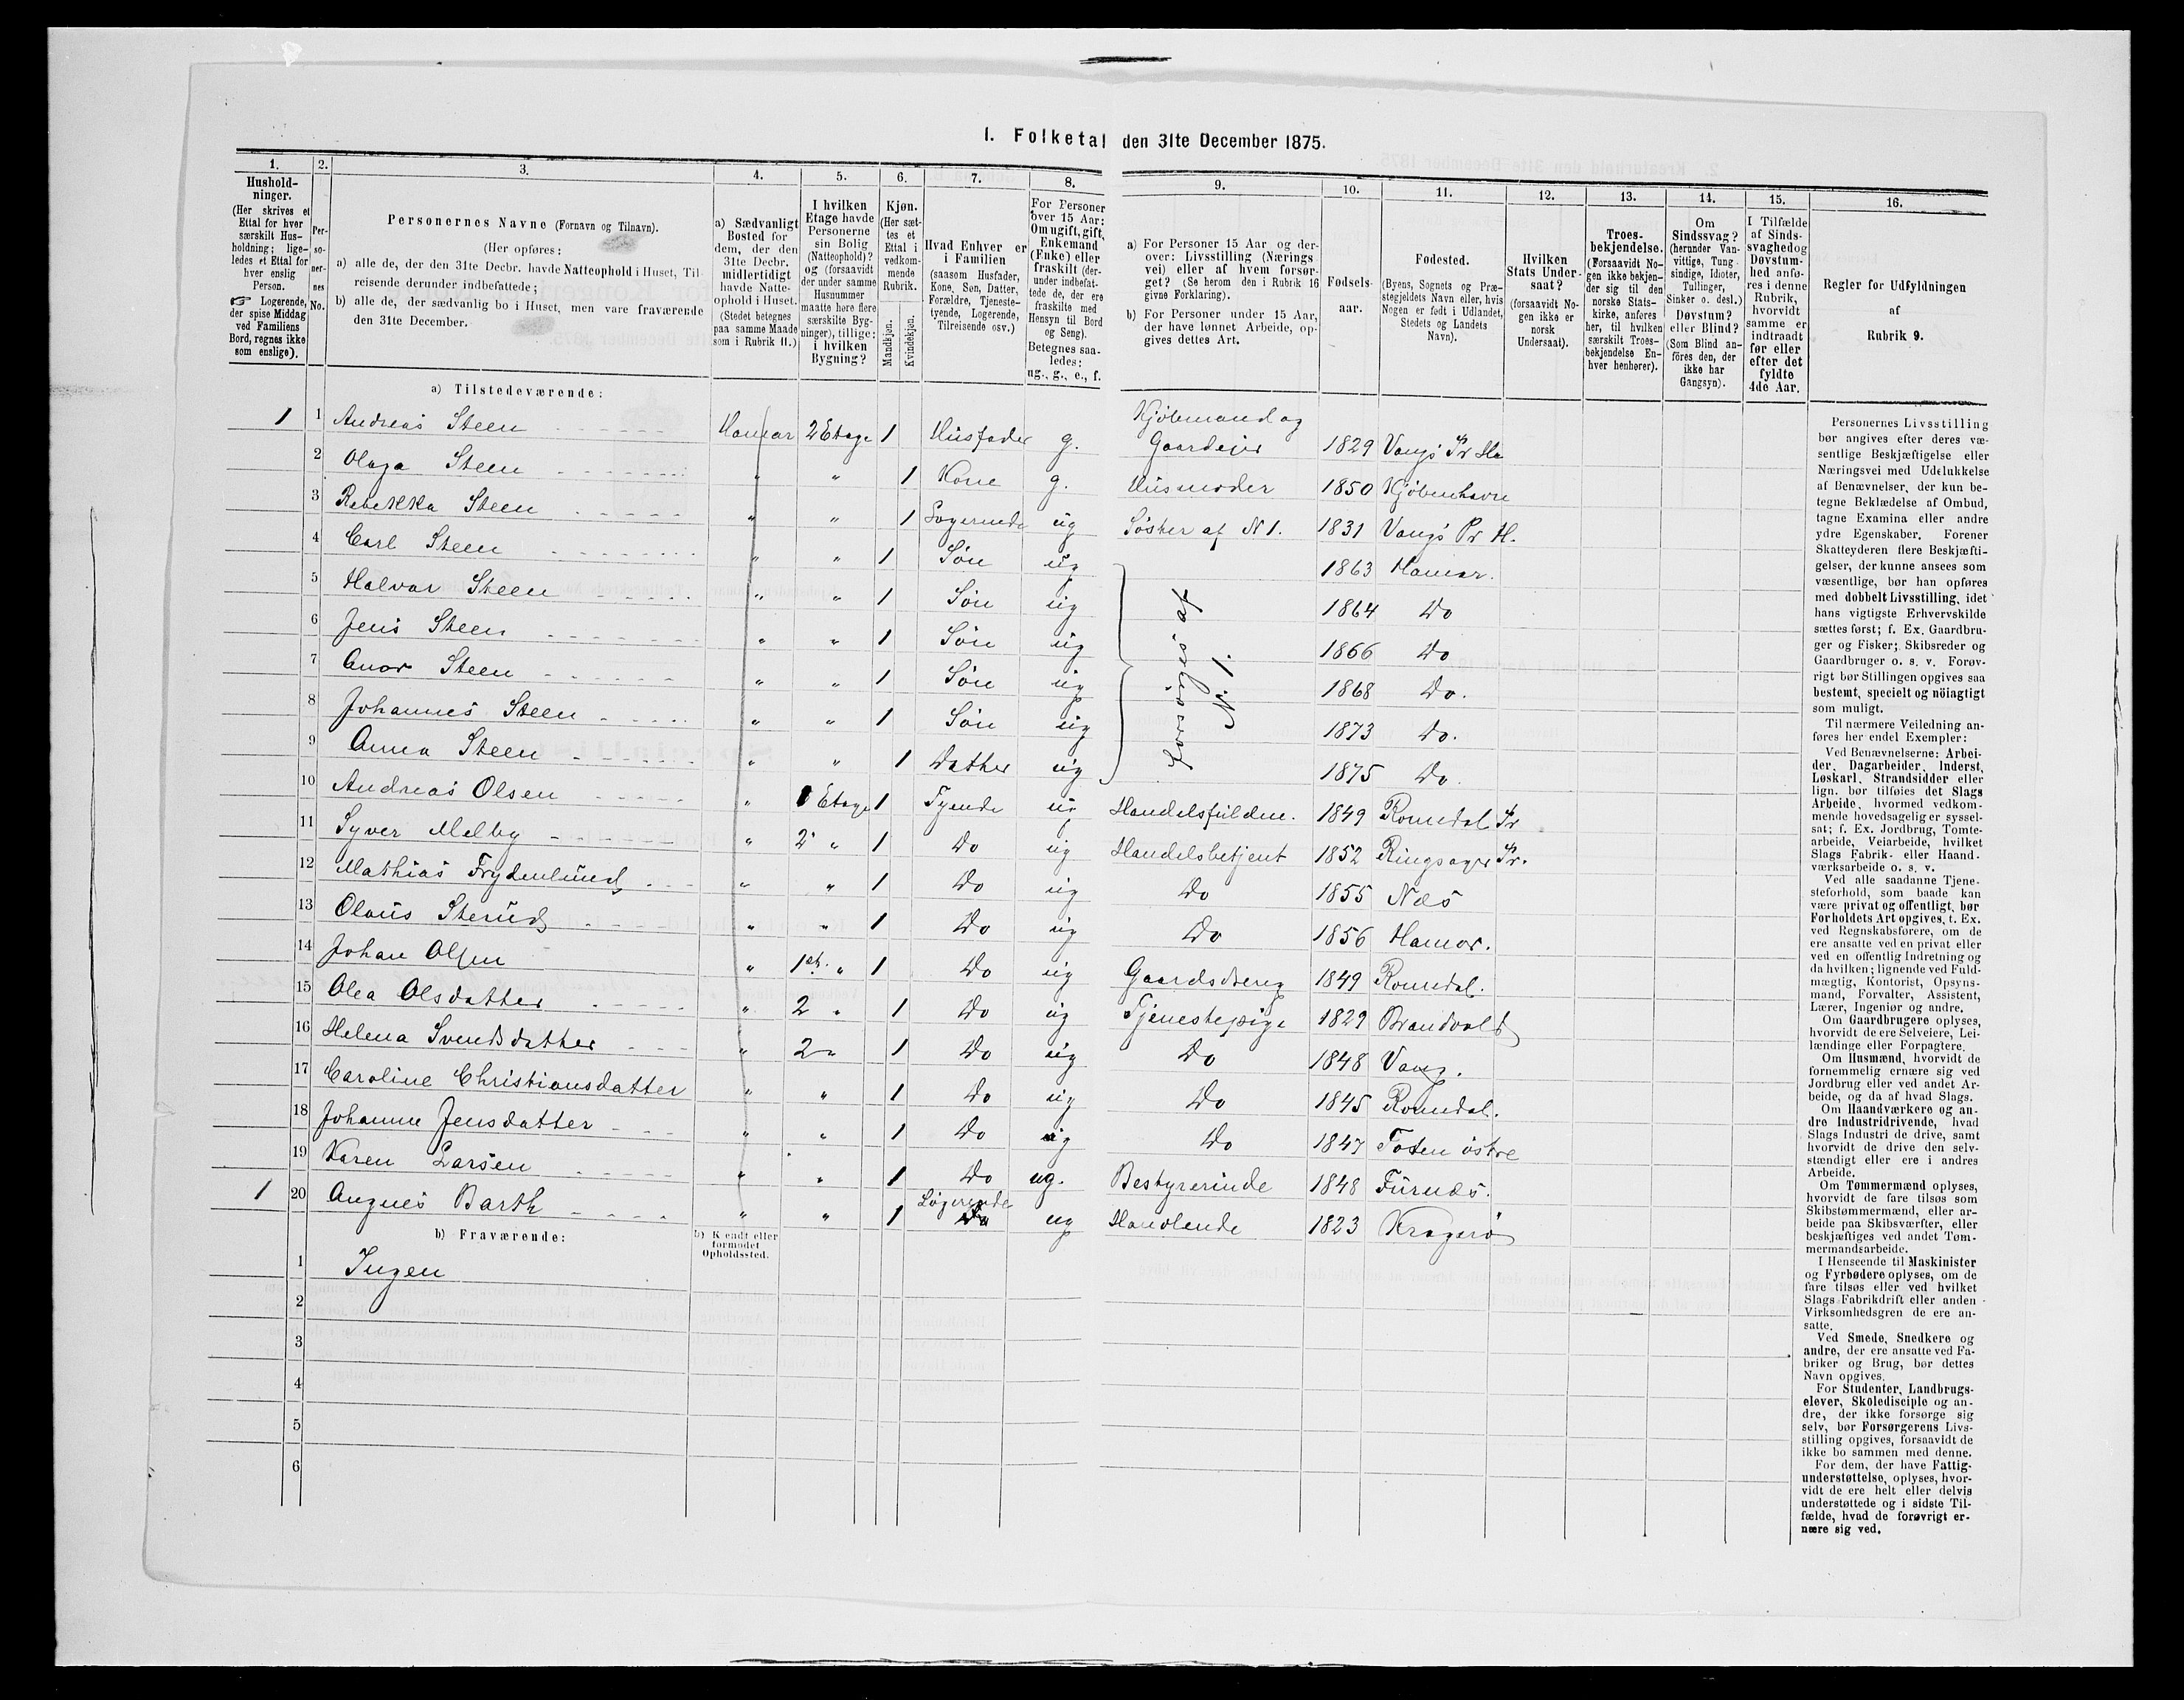 I. Folketal den 31te December 1875.
1. 2. 3. 4. 5. 6. 7. 8. 9. 10. 11. 12. 13. 14. 15. 16.
Hushold-
ninger.
(Her skrives et
Ettal for hver
særskilt Hus-
holdning; lige-
ledes et Ettal for
hver enslig
Person.
☞ Logerende,
der spise Middag
ved Familiens
Bord, regnes ikke
som enslige).
Per-
so-
ner-
nes
No.
Personernes Navne (Fornavn og Tilnavn).
(Her opføres:
a) alle de, der den 31te Decbr. havde Natteophold i Huset, Til-
reisende derunder indbefattede;
b) alle de, der sædvanlig bo i Huset, men vare fraværende
den 31te December.
a) Sædvanligt
Bosted for
dem, der den
31te Decbr.
midlertidigt
havde Natte-
ophold i Huset.
(Stedet betegnes
paa samme Maade
som i Rubrik 11.)
I hvilken
Etage havde
Personerne
sin Bolig
(Natteophold)?
og (forsaavidt
der under samme
Husnummer
maatte høre flere
særskilte Byg-
ninger), tillige:
i hvilken
Bygning?
Kjøn.
(Her sæt-
tes et
Ettal i
vedkom-
mende
Rubrik.
Mandkjøn.
Kvindekjøn.
Hvad Enhver er
i Familien
(saasom Husfader,
Kone, Søn, Datter,
Forældre, Tjeneste-
tyende, Logerende,
Tilreisende osv.)
For Personer
over 15 Aar:
Om ugift, gift,
Enkemand
(Enke) eller
fraskilt (der-
under indbefat-
tede de, der ere
fraskilte med
Hensyn til Bord
og Seng).
Betegnes saa-
ledes:
ug., g., e., f.
a) For Personer 15 Aar og der-
over: Livsstilling (Nærings
vei) eller af hvem forsør-
get? (Se herom den i Rubrik 16
givne Forklaring).
b) For Personer under 15 Aar,
der have lønnet Arbeide, op-
gives dettes Art.
Fødsels-
aar.
Fødested.
(Byens, Sognets og Præ-
stegjeldets Navn eller, hvis
Nogen er født i Udlandet,
Stedets og Landets
Navn).
Hvilken
Stats Under-
saat?
(forsaavidt No-
gen ikke er
norsk
Undersaat).
Troes-
bekjendelse.
(Forsaavidt No-
gen ikke bekjen-
der sig til den
norske Stats-
kirke, anføres
her, til hvilken
særskilt Troes-
bekjendelse En-
hver henhører).
Om
Sindssvag?
(herunder Van-
vittige, Tung
sindige, Idioter,
Tullinger,
Sinker o. desl.)
Døvstum?
eller Blind?
(Som Blind an-
föres den, der
ikke har
Gangsyn).
I Tilfælde
af Sinds-
svaghed og
Døvstum-
hed anfø-
res i denne
Rubrik,
hvorvidt
samme er
indtraadt
før eller
efter det
fyldte
4de Aar.
Regler for Udfyldningen
af
Rubrik 9.
a) Tilstedeværende:
1 1 Andreas Steen Hamar 2 Etage 1 Husfader g. Kjøbmand og Gaardejer 1829 Vangs Pr Ha
2 Olaga Steen " " 1 Kone g. Husmoder 1850 Kjøbenhavn
3 Rebekka Steen " " 1 Logerende ug Søster af N 1. 1831 Vangs Pr H.
4 Carl Steen " " 1 Søn ug 1863 Hamar.
5 Halvar Steen " " 1 Søn ug 1864 Do
6 Jens Steen " " 1 Søn ug 1866 Do
7 Anor Steen " " 1 Søn ug 1868 Do.
8 Johannes Steen " " 1 Søn ug 1873 Do.
9 Anna Steen " " 1 Datter ug 1875 Do.
Forsørges af
N. 1.
10 Andreas Olsen " 1 Etage 1 Tyende ug Handelsfuldm. 1849 Romedal Pr
11 Syver Melby " 2 " 1 Do ug Handelsbetjent 1852 Ringsager Pr.
12 Mathias Frydenlund " " 1 Do ug Do 1855 Næs
13 Olaus Sterud " " 1 Do ug Do 1856 Hamar.
14 Johan Olsen " 1st. " 1 Do ug Gaardsdreng 1849 Romedal.
15 Olea Olsdatter " 2 " 1 Do ug Tjenestepige 1829 Brandvold
16 Helena Svendsdatter " 2 " 1 Do ug Do 1848 Vang.
17 Caroline Christiansdatter " " 1 Do ug Do 1845 Romedal.
18 Johanne Jensdatter " " 1 Do ug Do 1847 Toten østre
19 Karen Larsen " " 1 Do ug. Bestyrerinde 1848 Furnæs.
1 20 Angnes Barth " " 1 Logerende ug Handlende 1823 Kragerø
b) Fraværende:
b) Kendt eller
formodet
Opholdssted.
1 Ingen
2
3
4
5
6
Personernes Livsstilling
bør angives efter deres væ-
sentlige Beskjæftigelse eller
Næringsvei med Udelukkelse
af Benævnelser, der kun be-
tegne Beklædelse af Ombud,
tagne Examina eller andre
ydre Egenskaber. Forener
Skatteyderen flere Beskjæfti-
gelser, der kunne ansees som
væsentlige, bør han opføres
med dobbelt Livsstilling, idet
hans vigtigste Erhvervskilde
sættes først; f. Ex. Gaardbru-
ger og Fisker; Skibsreder og
Gaardbruger o. s. v. Forøv-
rigt bør Stillingen opgives saa
bestemt, specielt og nöiagtigt
som muligt.
Til nærmere Veiledning an-
føres her endel Exempler:
Ved Benævnelserne: Arbei-
der, Dagarbeider, Inderst,
Løskarl, Strandsidder eller
lign. bør tilføies det Slags
Arbeide, hvormed vedkom-
mende hovedsagelig er syssel-
sat; f. Ex. Jordbrug, Tomte-
arbeide, Veiarbeide, hvilket
Slags Fabrik- eller Haand-
værksarbeide o. s. v.
Ved alle saadanne Tjene-
steforhold, som baade kan
være privat og offentligt, bør
Forholdets Art opgives, t. Ex.
ved Regnskabsførere, om de
ere ansatte ved en privat eller
ved en offentlig Indretning og
da hvilken; lignende ved Fuld-
mægtig, Kontorist, Opsyns-
mand, Forvalter, Assistent,
Lærer, Ingeniør og andre.
Om Gaardbrugere oplyses,
hvorvidt de ere Selveiere, Lei-
lændinge eller Forpagtere.
Om Husmænd, hvorvidt de
fornemmelig ernære sig ved
Jordbrug eller ved andet Ar-
beide, og da af hvad Slags.
Om Haandværkere og an-
dre Industridrivende, hvad
Slags Industri de drive, samt
hvorvidt de drive den selv-
stændigt eller ere i andres
Arbeide.
Om Tømmermænd oplyses,
hvorvidt de fare tilsøs som
Skibstømmermænd, eller ar-
beide paa Skibsværfter, eller
beskjæftiges ved andet Tøm-
mermandsarbeide.
I Henseende til Maskinister
og Fyrbødere oplyses, om de
fare tilsøs eller ved hvilket
Slags Fabrikdrift eller anden
Virksomhedsgren de ere an-
satte.
Ved Smede, Snedkere og
andre, der ere ansatte ved Fa-
briker og Brug, bør dettes
Navn opgives.
For Studenter, Landbrugs-
elever, Skoledisciple og an-
dre, der ikke forsørge sig
selv, bør Forsørgerens Livs-
stilling opgives, forsaavidt de
ikke bo sammen med denne.
For dem, der have Fattig-
understøttelse, oplyses, hvor-
vidt de ere helt eller delvis
understøttede og i sidste Til-
fælde, hvad de forøvrigt er-
nære sig ved.